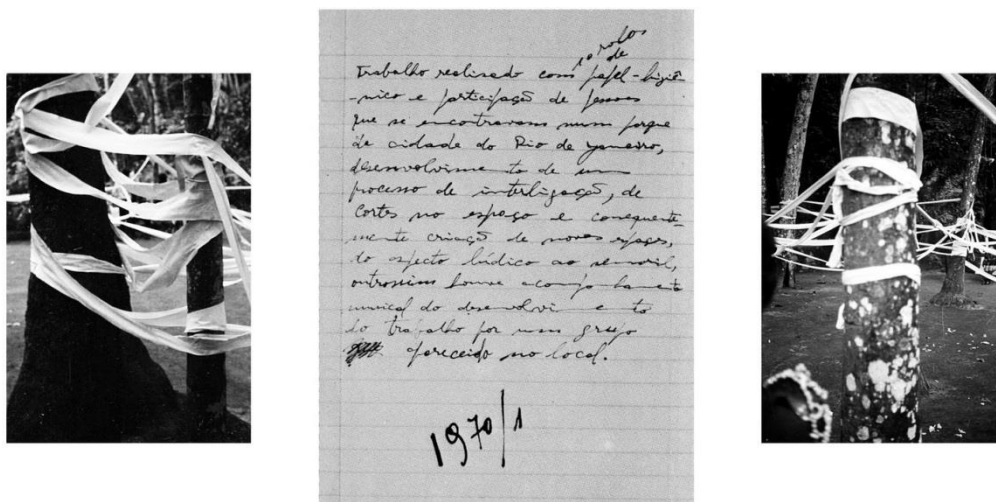 10 rolos
de
trabalho realisado com papel-higiê-
-nico e participação de pessoas
que se encontravam num parque
da cidade do Rio de yaneiro,
desenvolvimento de um
processo de interligação, de
cortes no espaço e consequente-
mente criação de novos espaços,
do aspecto lúdico ao sensorial,
outrossim houve acompanhamento
musical do desenvolvimento
do trabalho por um grupo
aparecido no local.
1970/1